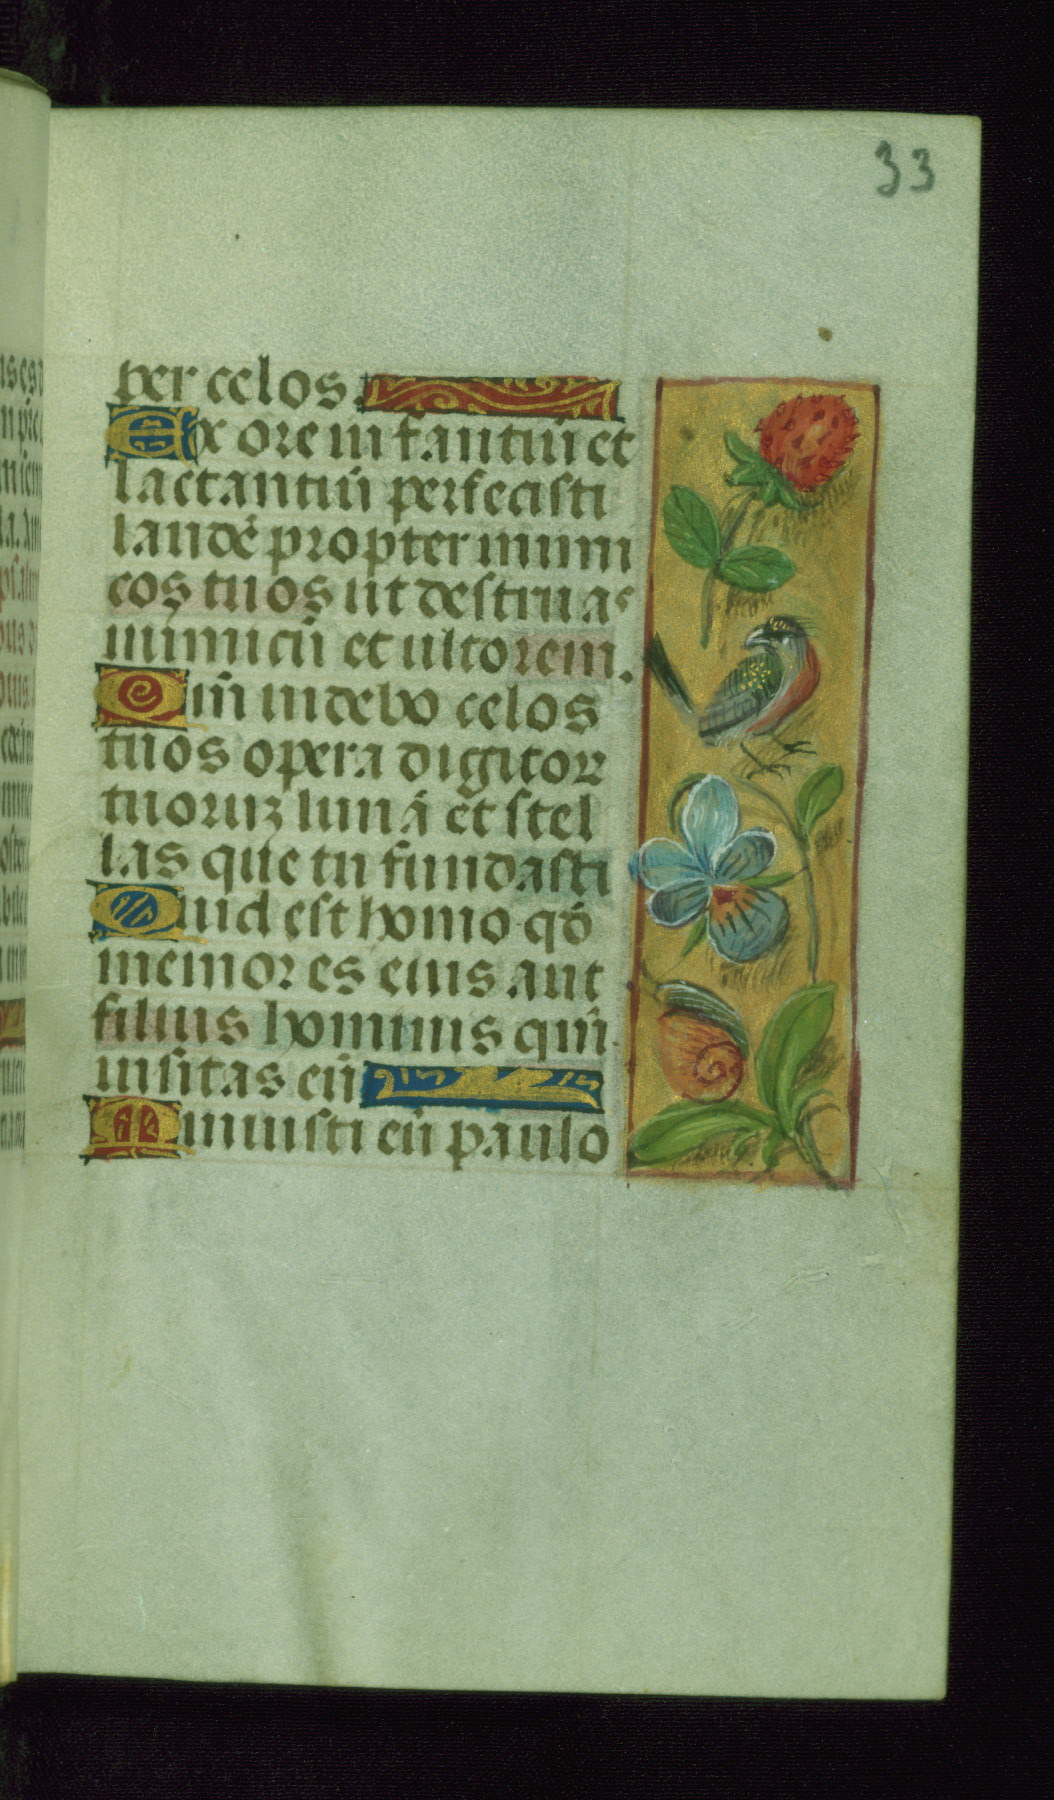 33
per celos
Ex ore infantiū et
lactantiū perfecisti
laudē propter inimi
cos tuos ut destruas
inimicū et ultorem.
Qm̄ uidebo celos
tuos opera digitor
tuorum lunā et stel
las que tu fundasti
Quid est homo qō
memor es eius aut
filius hominis qm̄
uisitas eū
Minuisti eū paulo